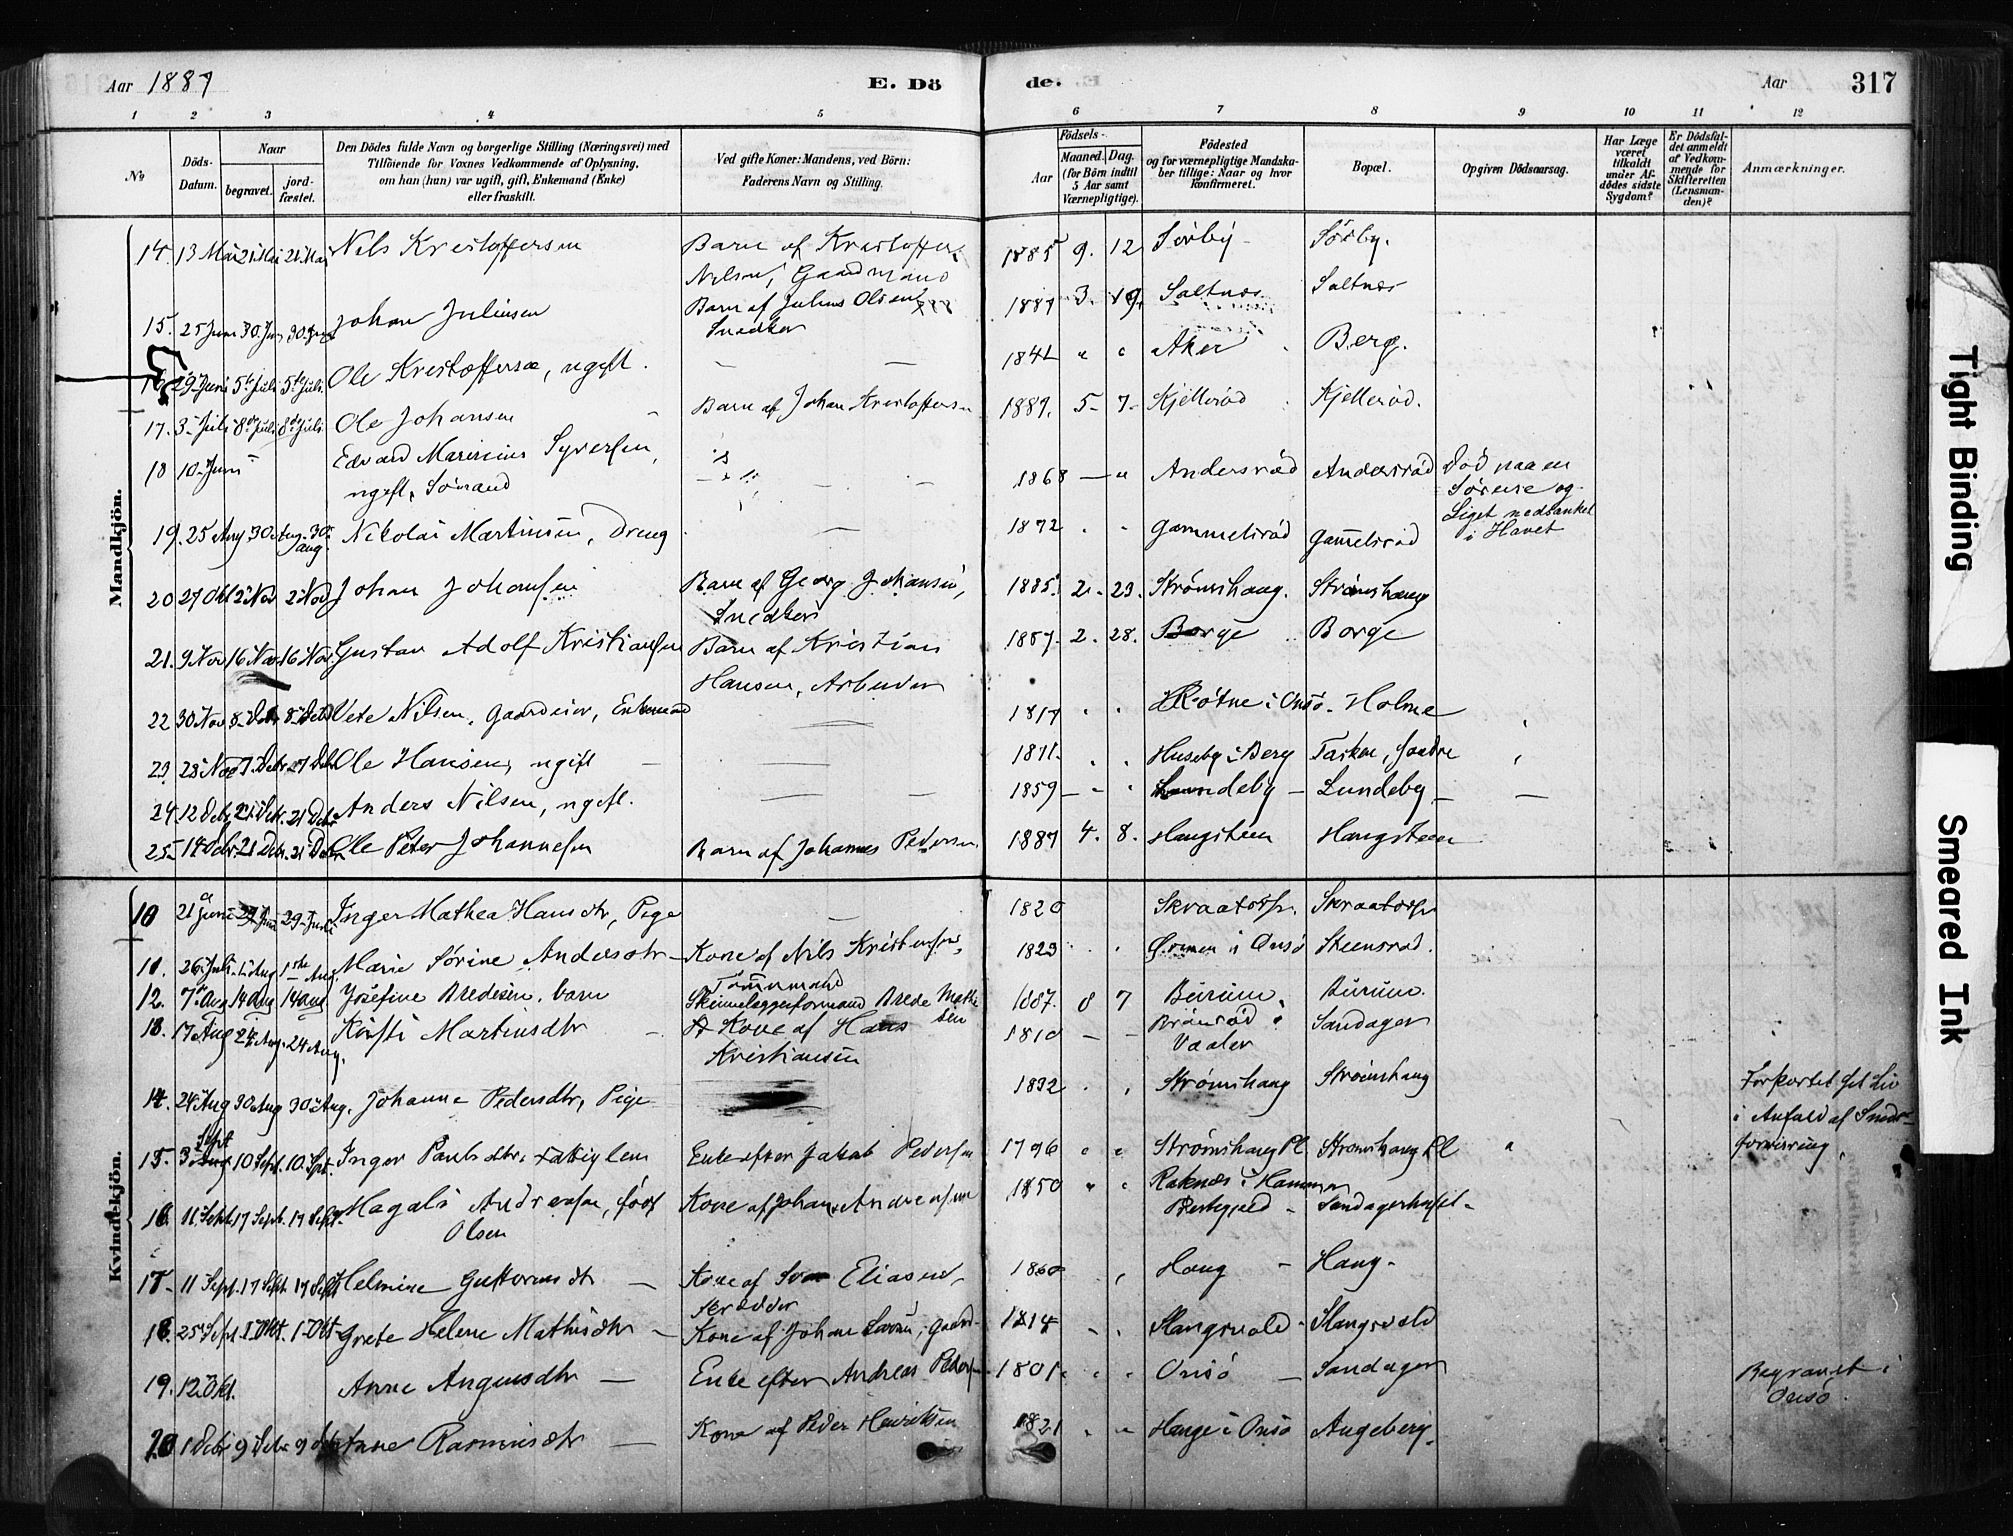 Aar 1887 E. Dö de. Aar 317
1 2 3 4 5 6 7 8 9 10 11 12
No Döds-Datum. Naar begravet. jordfæstet. Den Dödes fulde Navn og borgerlige Stilling (Næringsvei) med Tilföiende for Voxnes Vedkommende af Oplysning, om han (hun) var ugift, gift, Enkemand (Enke) eller fraskilt. Ved gifte Koner: Mandens, ved Börn: Faderens Navn og Stilling. Födsels- Aar Maaned. Dag. (for Börn indtil 5 Aar samt Værnepligtige). Födested og for værnepligtige Mandskaber tillige: Naar og hvor konfirmeret. Bopæl. Opgiven Dödsaarsag. Har Læge været tilkaldt under Afdödes sidste Sygdom? Er Dödsfaldet anmeldt af Vedkommende for Skifteretten (Lensmanden)? Anmærkninger.
Mandkjön.
14. 13 Mai 21 Mai 21 Mai Nils Kristoffersen Barn af Kristoffer Nilsen, Gaardmand 1885 9. 12 Sörby Sörby.
15. 25 Juni 30 Juni 30 Juni Johan Juliusen Barn af Julius Olsen Snedker 1887 3. 19. Saltnæs Saltnæs
16 29 Juni 5te Juli 5te Juli. Ole Kristoffersen, ugift. — — 1841 " " Aker Berg.
17. 3 Juli 8de Juli 8de Juli. Ole Johansen Barn af Johan Kristoffersen 1887. 5 7 Kjelleröd Kjelleröd.
18 10 Juni Edvard Marinius Syversen, ugift, Sömand 1868 — " Andersröd Andersröd Död paa en Söreise og Liget nedsænket i Havet
19. 25 Aug 30 Aug. 30 Aug. Nikolai Martinsen, Dreng — 1872 Gammelsröd Gammelsröd
20 27 Okt 2 Nov 2 Nov Johan Johansen Barn af Georg Johansen, Snedker 1885 2. 23. Strömshaug. Strömshaug
21. 9 Nov 16 Nov 16 Nov. Gustav Adolf Kristiansen Barn af Kristian Hansen, Arbeider 1887 2. 28. Borge Borge
22 30 Nov 8 Debr 8 Debr Nilsen, Gaardeier, Enkemand — 1817 i Onsö Holme
23 28 Nov 7 Debr. Ole Hansen, ugift — 1871. Huseby i Berg
24 12 Debr 21 Debr. 21 Debr Anders Nilsen, ugift. — — 1859 — Lundeby — Lundeby — —
25 14 Debr. 21 Debr. 21 Debr Ole Peter Johannesen Barn af Johannes Pedersen 1887 4. 8. Haugsteen Haugsteen
Kvindekjön.
10 21 Juni 29 Juni 29 Juni Inger Mathea Hansdtr, Pige — 1820 Skraatorp. Skraatorp
11. 26 Juli 1 Aug 1ste Aug. Marie Sörine Andersdtr — Kone af Nils Kristensen, Tömmermand 1823 i Onsö Steensröd.
12. 7 Aug 14 Aug 14 Aug Josefine Bredesen, barn Skinnelæggerformand Brede Mathisen 1887. 8 7 Bürum. Bürum.
13. 17 Aug 24 Aug. 24 Aug. Kirsti Martinsdtr — Kone af Hans Kristiansen 1810 — — Brönröd i Vaaler Sandager
14. 24 Aug 30 Aug 30 Aug. Johanne Pedersdtr, Pige — 1832 Strömshaug Strömshaug Forkortet sit Liv i Anfald af Sindsforvirring.
15. 3 Sept 10 Sept. 10 Sept. Inger Paulsdtr, Fattiglem Enke efter Jakob Pedersen 1796 " " Strömshaug Pl. Strömshaug Pl
16. 11 Sept. 17 Sept. 17 Sept. Magali Andreasen, född Olsen Kone af Johan Andreasen 1850 " " Raknæs i Hammer Prestegjæld —
17 11 Sept. 17 Sept. 17 Sept Helmine Guttormsdtr — Kone af Eliasen, skrædder 1860 Haug — Haug.
18. 25 Sept. 1. Okt. 1. Okt Grete Helene Mathisdtr — Kone af Johan 1814 Slangsvold Slangsvold
19. 12 Okt. Anne Angusdtr — Enke efter Andreas Petersen 1801 Onsö — Sandager Begravet i Onsö.
20 1 Debr 9 Debr 9 Debr Anne Rasmusdtr — Kone af Peder Henriksen 1821 " " Hauge i Onsö Augeberg.
Tight Binding
Smeared Ink